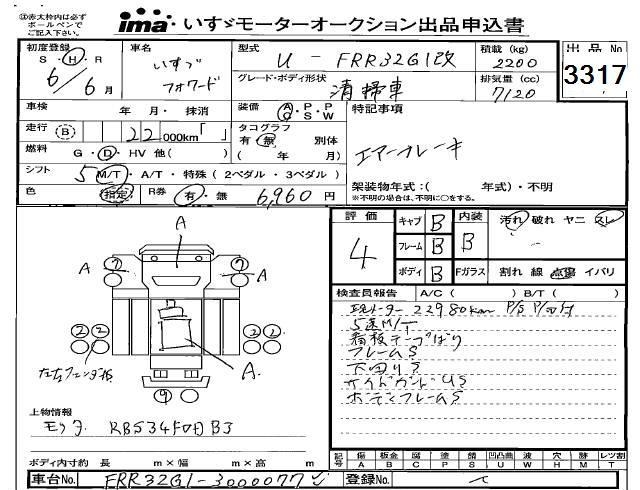 ③赤太枠内は必ず
ボールペンで
ご記入下さい。
ima いすゞモーターオークション出品申込書
初度登録
S ・ H ・ R
6 / 6 月
車名
いすゞ
フォワード
型式
U - FRR32G1改
積載 (kg)
2200
グレード・ボディ形状
清掃車
排気量 (cc)
7120
出品 No
3317
車検 年 月・ 抹消
装備 A・P・P
C・S・W
特記事項
エアーブレーキ
走行 (B) 22 000km「 」
タコグラフ
有 無 別体
( 年 月)
燃料 G・D・HV 他( )
シフト 5 M/T・A/T・特殊 (2ペダル・3ペダル)
架装物年式:( 年式)・不明
※不明の場合は、不明に○をする。
色 指定 R券 有・無 6,960 円
評価
4
キャブ B 内装 汚れ 破れ ヤニ スレ
フレーム B B
ボディ B Fガラス 割れ 線 点傷 イバリ
検査員報告 A/C ( ) B/T ( )
現メーター 22980km
5速M/T
看板テープばり
フレームS
下回りS
サイドガードUS
ボディフレームS
A
A ⑦ ⑦ A
② ② ② ②
A
⑨
上物情報
モリタ
ボディ内寸約 長 m×幅 m×高 m
記号 傷 板金 腐 塗 錆 凹凸曲 波 穴 跡 レツ割
A B C P S U W H M T
車台No. FRR32G1-3000077
登録No.